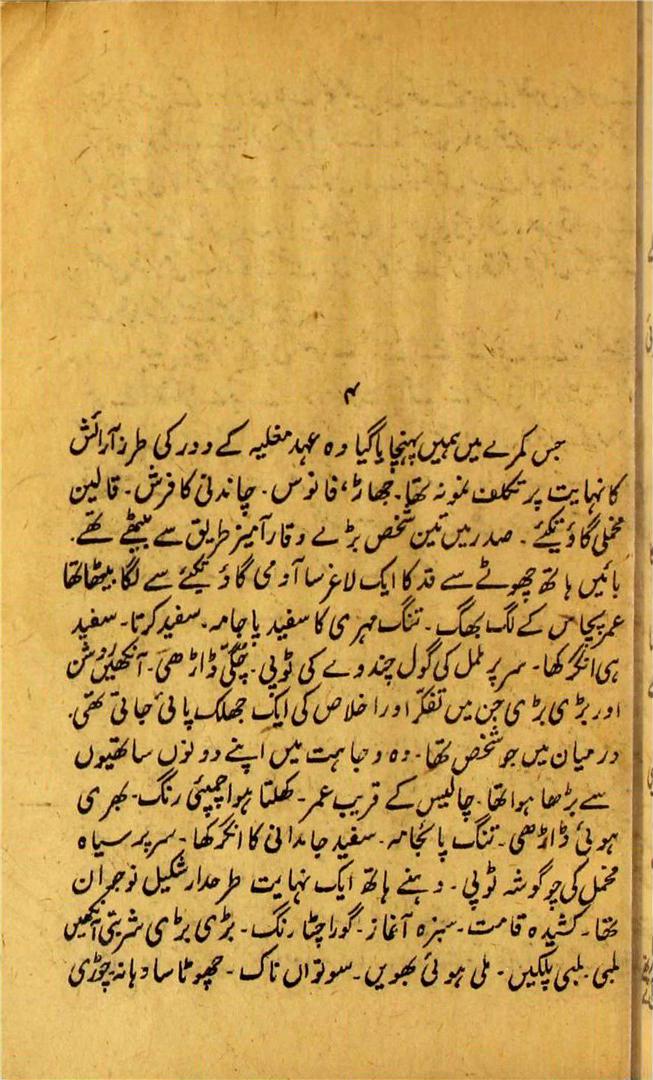 ۴
جس کمرے میں ہمیں پہنچایا گیا وہ عہد مغلیہ کے دور کی طرز آرائش
کا نہایت پر تکلف نمونہ تھا۔ جھاڑ، فانوس۔ چاندنی کا فرش۔ قالین
مخملی گاؤ تکئے۔ صدر میں تین شخص بڑے وقار آمیز طریق سے بیٹھے تھے۔
بائیں ہاتھ چھوٹے سے قد کا ایک لاغر سا آدمی گاؤ تکئے سے لگا بیٹھا تھا
عمر پچاس کے لگ بھگ۔ تنگ مہری کا سفید پاجامہ۔ سفید کرتا۔ سفید
ہی انگرکھا۔ سر پر ململ کی گول چندوے کی ٹوپی۔ چگی ڈاڑھی۔ آنکھیں روشن
اور بڑی بڑی جن میں تفکّر اور اخلاص کی ایک جھلک پائی جاتی تھی۔
درمیان میں جو شخص تھا۔ وہ وجاہت میں اپنے دونوں ساتھیوں
سے بڑھا ہوا تھا۔ چالیس کے قریب عمر۔ کھلتا ہوا چمپئی رنگ۔ بھری
ہوئی ڈاڑھی۔ تنگ پائجامہ۔ سفید جامدانی کا انگرکھا۔ سر پر سیاہ
مخمل کی چوگوشہ ٹوپی۔ دہنے ہاتھ ایک نہایت طرحدار شکیل نوجوان
تھا۔ کشیدہ قامت۔ سبزہ آغاز۔ گورا چٹا رنگ۔ بڑی بڑی شربتی آنکھیں
لمبی۔ لمبی پلکیں۔ ملی ہوئی بھویں۔ سوتواں ناک۔ چھوٹا سا دہانہ۔ چوڑی